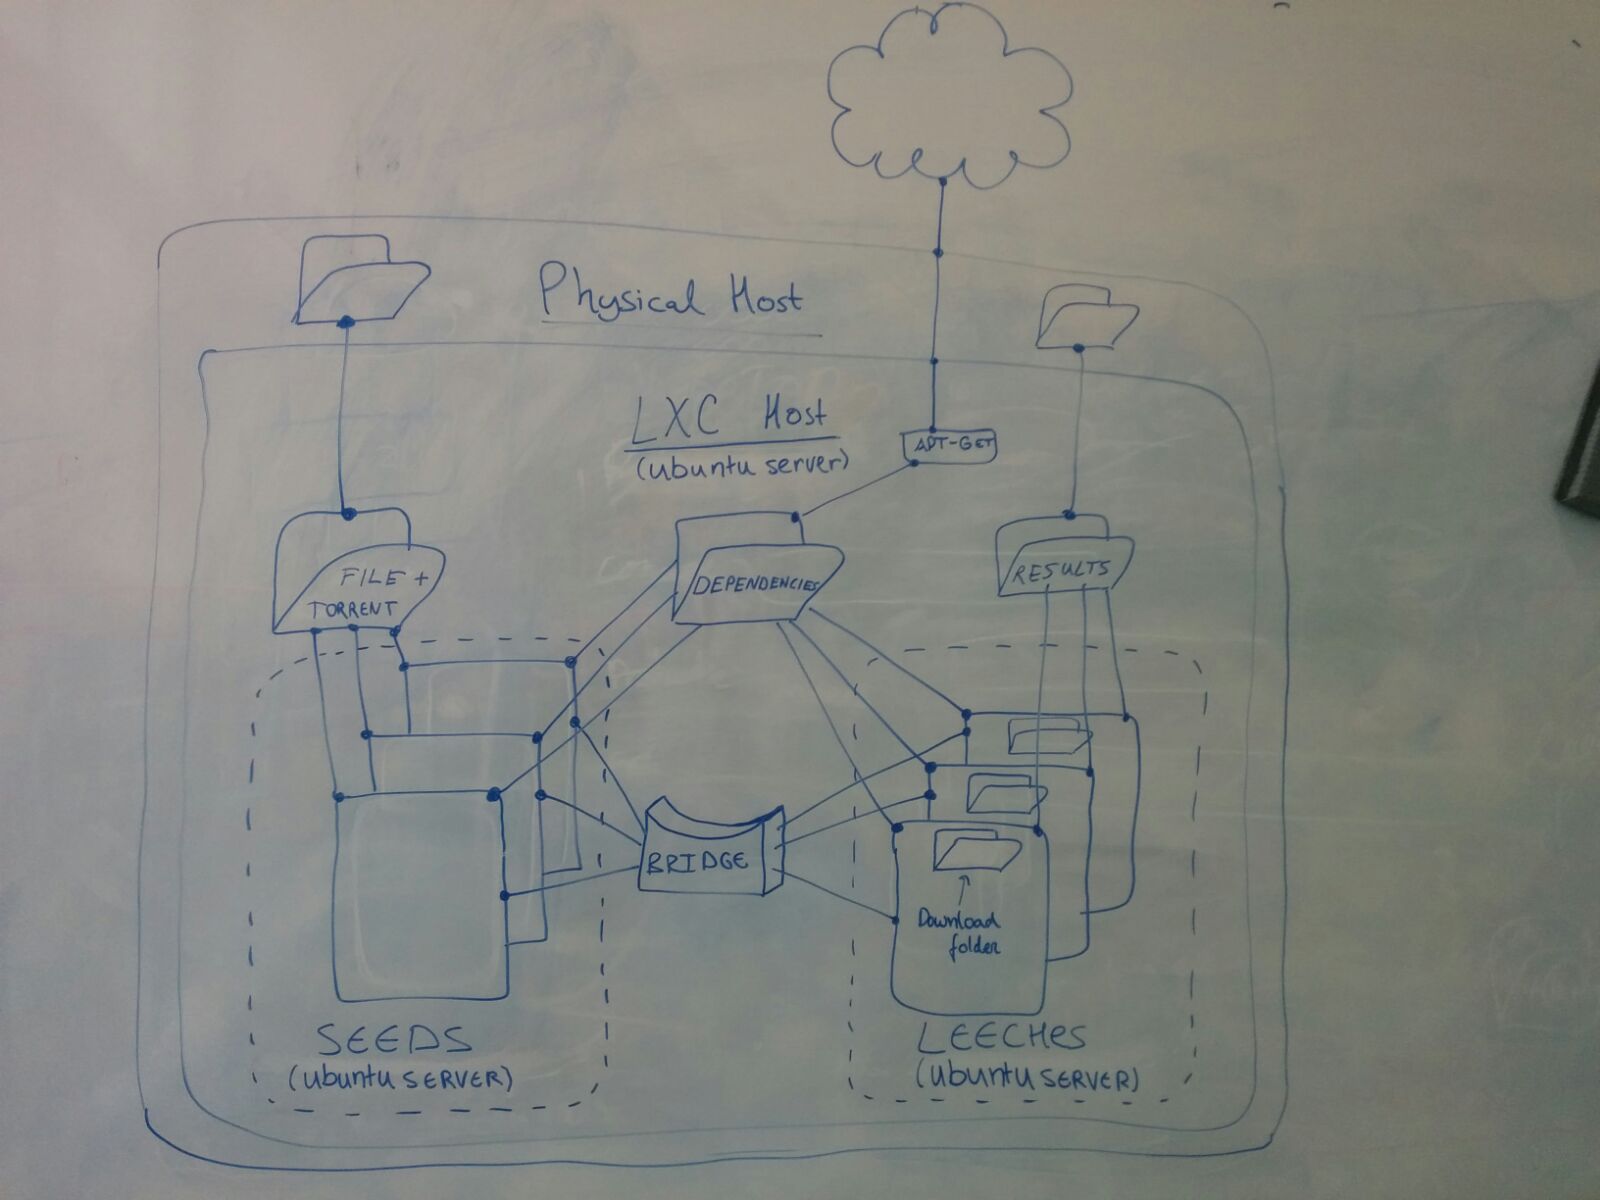 Physical Host
LXC Host
(ubuntu server)
APT-GET
FILE +
TORRENT
DEPENDENCIES
RESULTS
BRIDGE
Download
folder
SEEDS
(ubuntu SERVER)
LEECHES
(ubuntu SERVER)